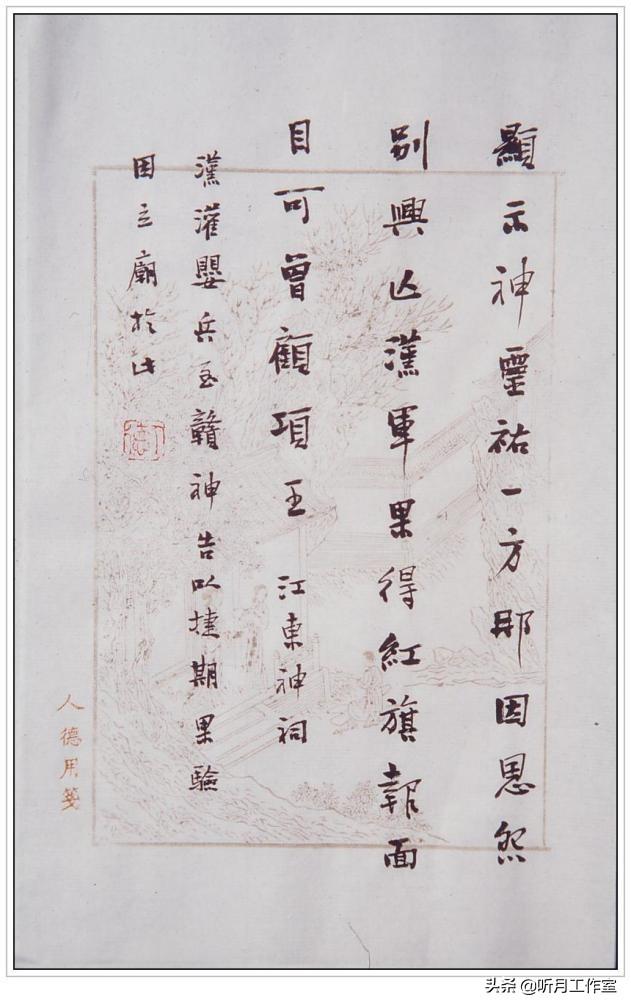 顯示神靈祐一方那因恩怨
別興亾漢軍果得紅旗報面
目可曾顧項王 江東神祠
漢灌嬰兵至贛神告以捷期果驗
因立廟於此
人德用箋
头条 @听月工作室